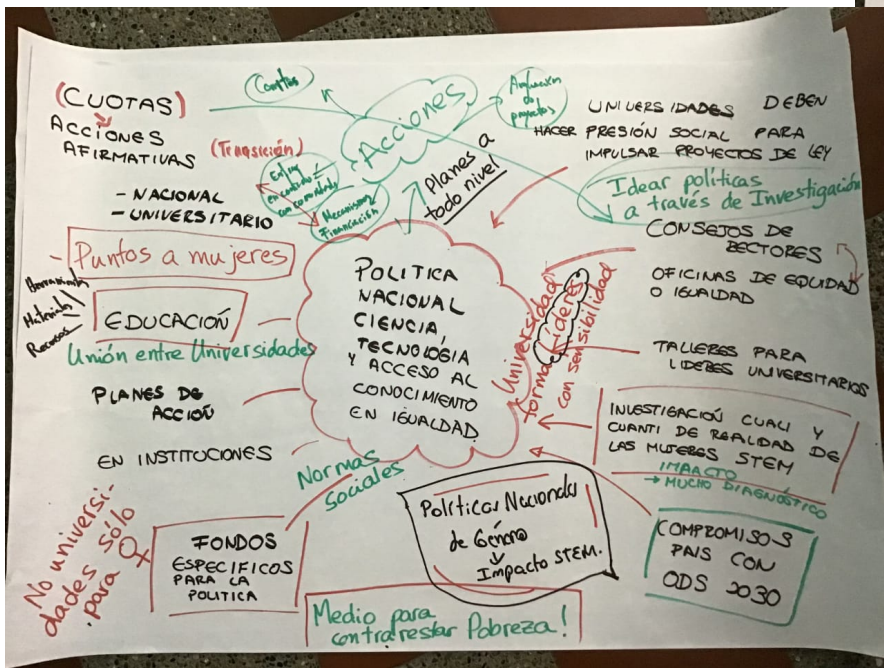 (CUOTAS)
ACCIONES
AFIRMATIVAS
- NACIONAL
- UNIVERSITARIO
- Puntos a mujeres
Herramientas
Materiales
Recursos
EDUCACIÓN
Unión entre Universidades
PLANES DE
ACCIÓN
EN INSTITUCIONES
No universi-
dades sólo
para ♀
FONDOS
ESPECIFICOS
PARA LA
POLITICA
Normas
Sociales
(Transición)
Acciones
de
proyectos
Mecanismos
Financiación
Planes a
todo nivel
POLITICA
NACIONAL
CIENCIA,
TECNOLOGIA
Y ACCESO AL
CONOCIMIENTO
EN IGUALDAD
Universidad
forma líderes
con sensibilidad
Políticas Nacionales
de Género
Impacto STEM.
Medio para
contrarestar Pobreza!
UNIVERSIDADES DEBEN
HACER PRESIÓN SOCIAL PARA
IMPULSAR PROYECTOS DE LEY
Idear políticas
a través de Investigación
CONSEJOS DE
RECTORES
OFICINAS DE EQUIDAD
O IGUALDAD
TALLERES PARA
LIDERES UNIVERSITARIOS
INVESTIGACIÓN CUALI Y
CUANTI DE REALIDAD DE
LAS MUJERES STEM
IMPACTO
→ MUCHO DIAGNÓSTICO
COMPROMISOS
PAIS CON
ODS 2030